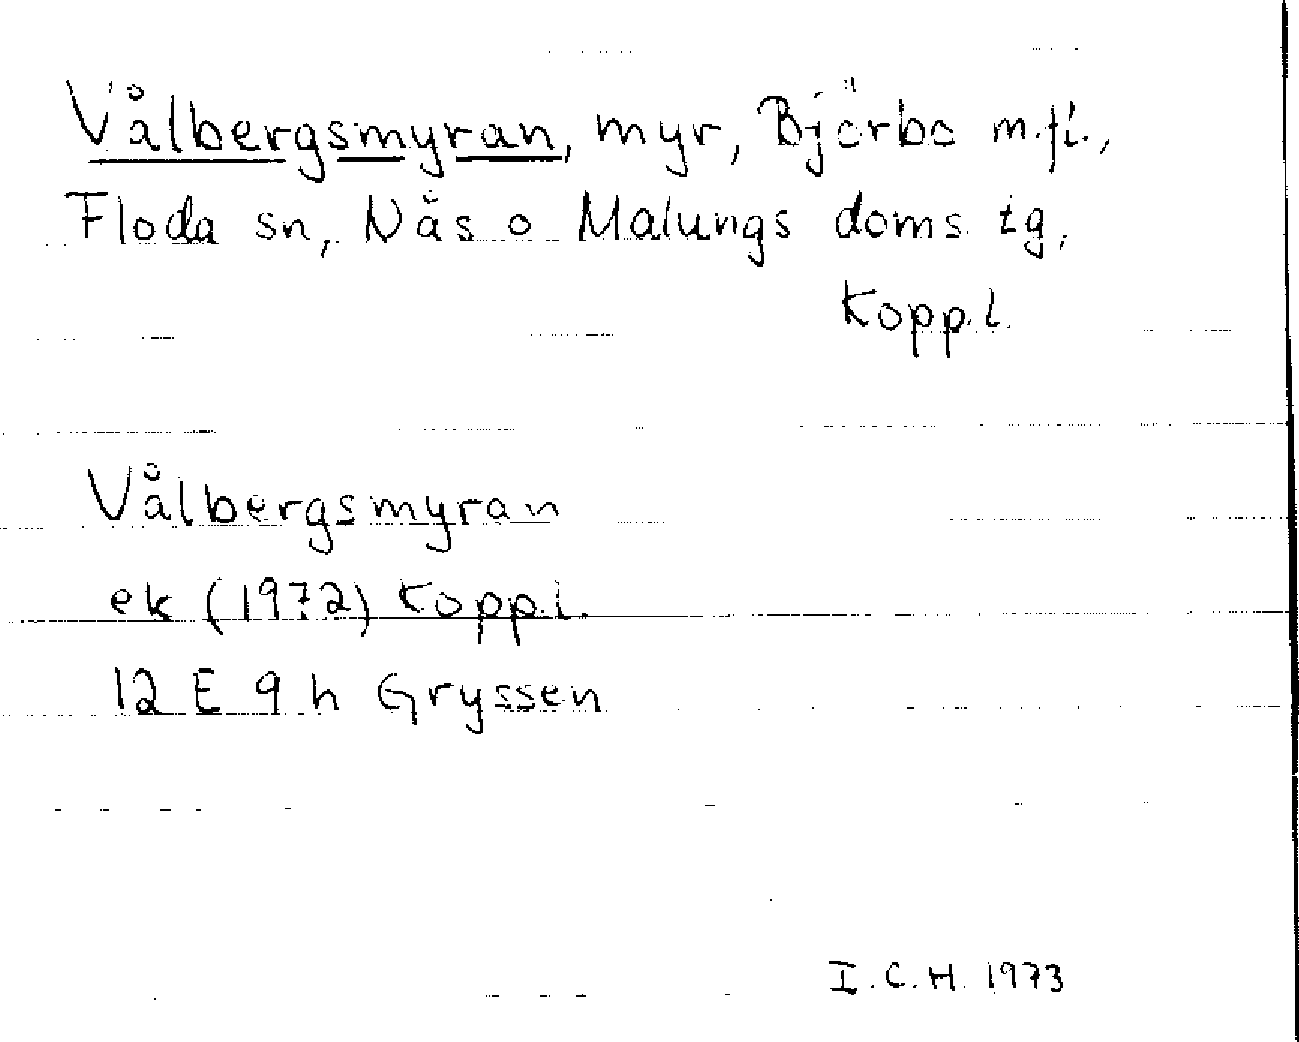 Vålbergsmyran, myr, Björbo m.fl.,
Floda sn, Nås o Malungs doms tg,
Kopp.l.
Vålbergsmyran
ek (1972) Kopp.l.
12 E 9 h Gryssen
I.C.H. 1973